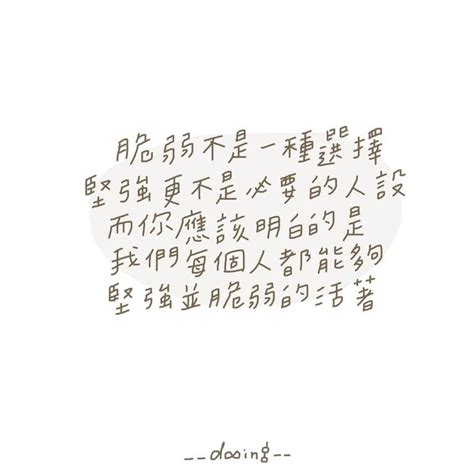 脆弱不是一種選擇
堅強更不是必要的人設
而你應該明白的是
我們每個人都能夠
堅強並脆弱的活著
__dosing__